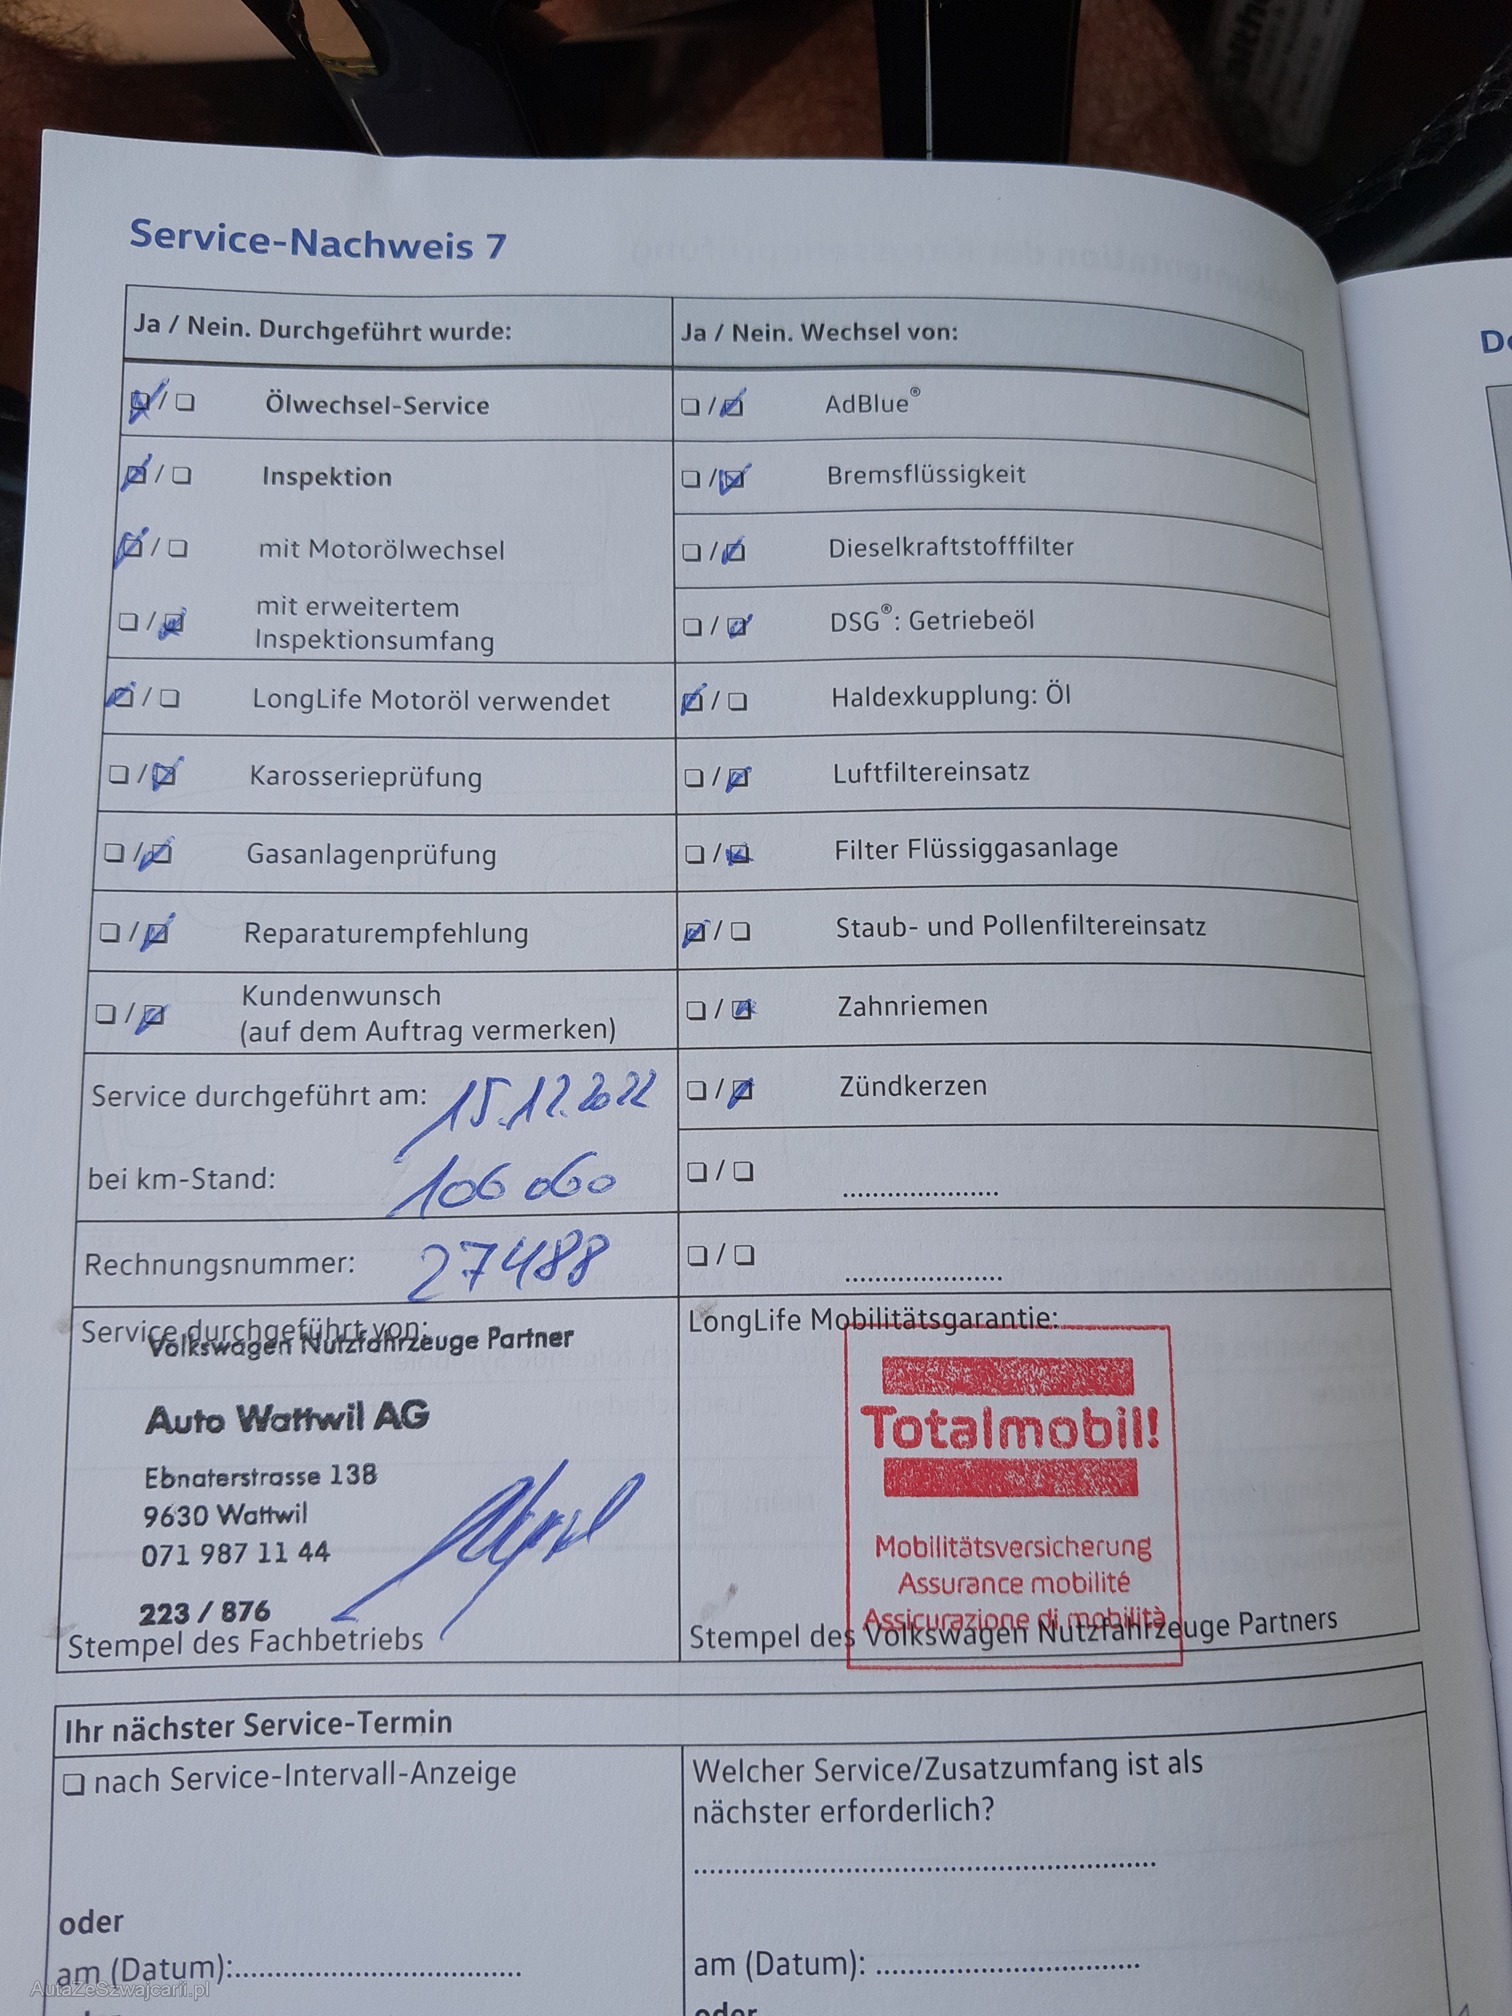 Service-Nachweis 7
Ja / Nein. Durchgeführt wurde:
Ölwechsel-Service
Inspektion
mit Motorölwechsel
mit erweitertem
Inspektionsumfang
LongLife Motoröl verwendet
Karosserieprüfung
Gasanlagenprüfung
Reparaturempfehlung
Kundenwunsch
(auf dem Auftrag vermerken)
Service durchgeführt am: 15.12.2022
bei km-Stand: 106 060
Rechnungsnummer: 27488
Service durchgeführt von:
Volkswagen Nutzfahrzeuge Partner
Auto Wattwil AG
Ebnaterstrasse 138
9630 Wattwil
071 987 11 44
223 / 876
Stempel des Fachbetriebs
Ja / Nein. Wechsel von:
AdBlue®
Bremsflüssigkeit
Dieselkraftstofffilter
DSG®: Getriebeöl
Haldexkupplung: Öl
Luftfiltereinsatz
Filter Flüssiggasanlage
Staub- und Pollenfiltereinsatz
Zahnriemen
Zündkerzen
LongLife Mobilitätsgarantie:
Totalmobil!
Mobilitätsversicherung
Assurance mobilité
Assicurazione di mobilità
Stempel des Volkswagen Nutzfahrzeuge Partners
Ihr nächster Service-Termin
nach Service-Intervall-Anzeige
oder
am (Datum):
Welcher Service/Zusatzumfang ist als
nächster erforderlich?
am (Datum):
oder
AutaZeSzwajcarii.pl